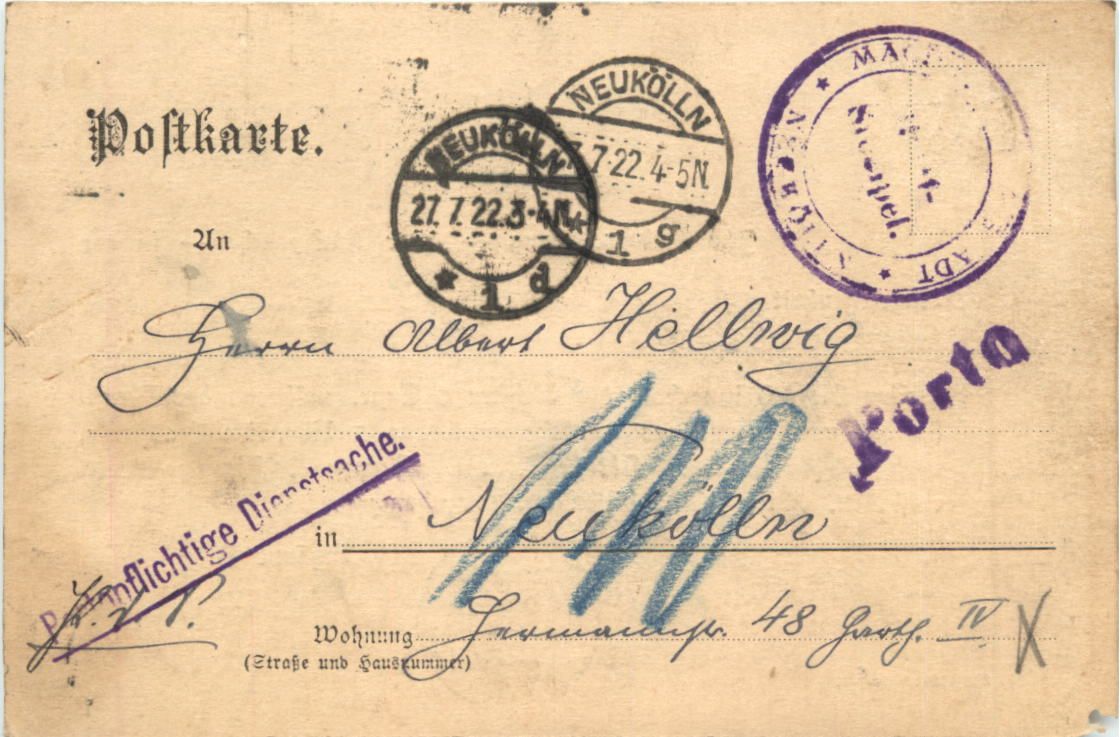 Postkarte.
NEUKÖLLN
7.22.4-5N.
* 1 g
NEUKÖLLN
27.7.22.3-4N.
* 1 d
MAG
ADT *
Stempel.
An
Herrn Albert Hellwig
Porto
Portopflichtige Dienstsache.
in Neukölln
Wohnung Hermannstr. 48 Garth. IV
(Straße und Hausnummer)
X